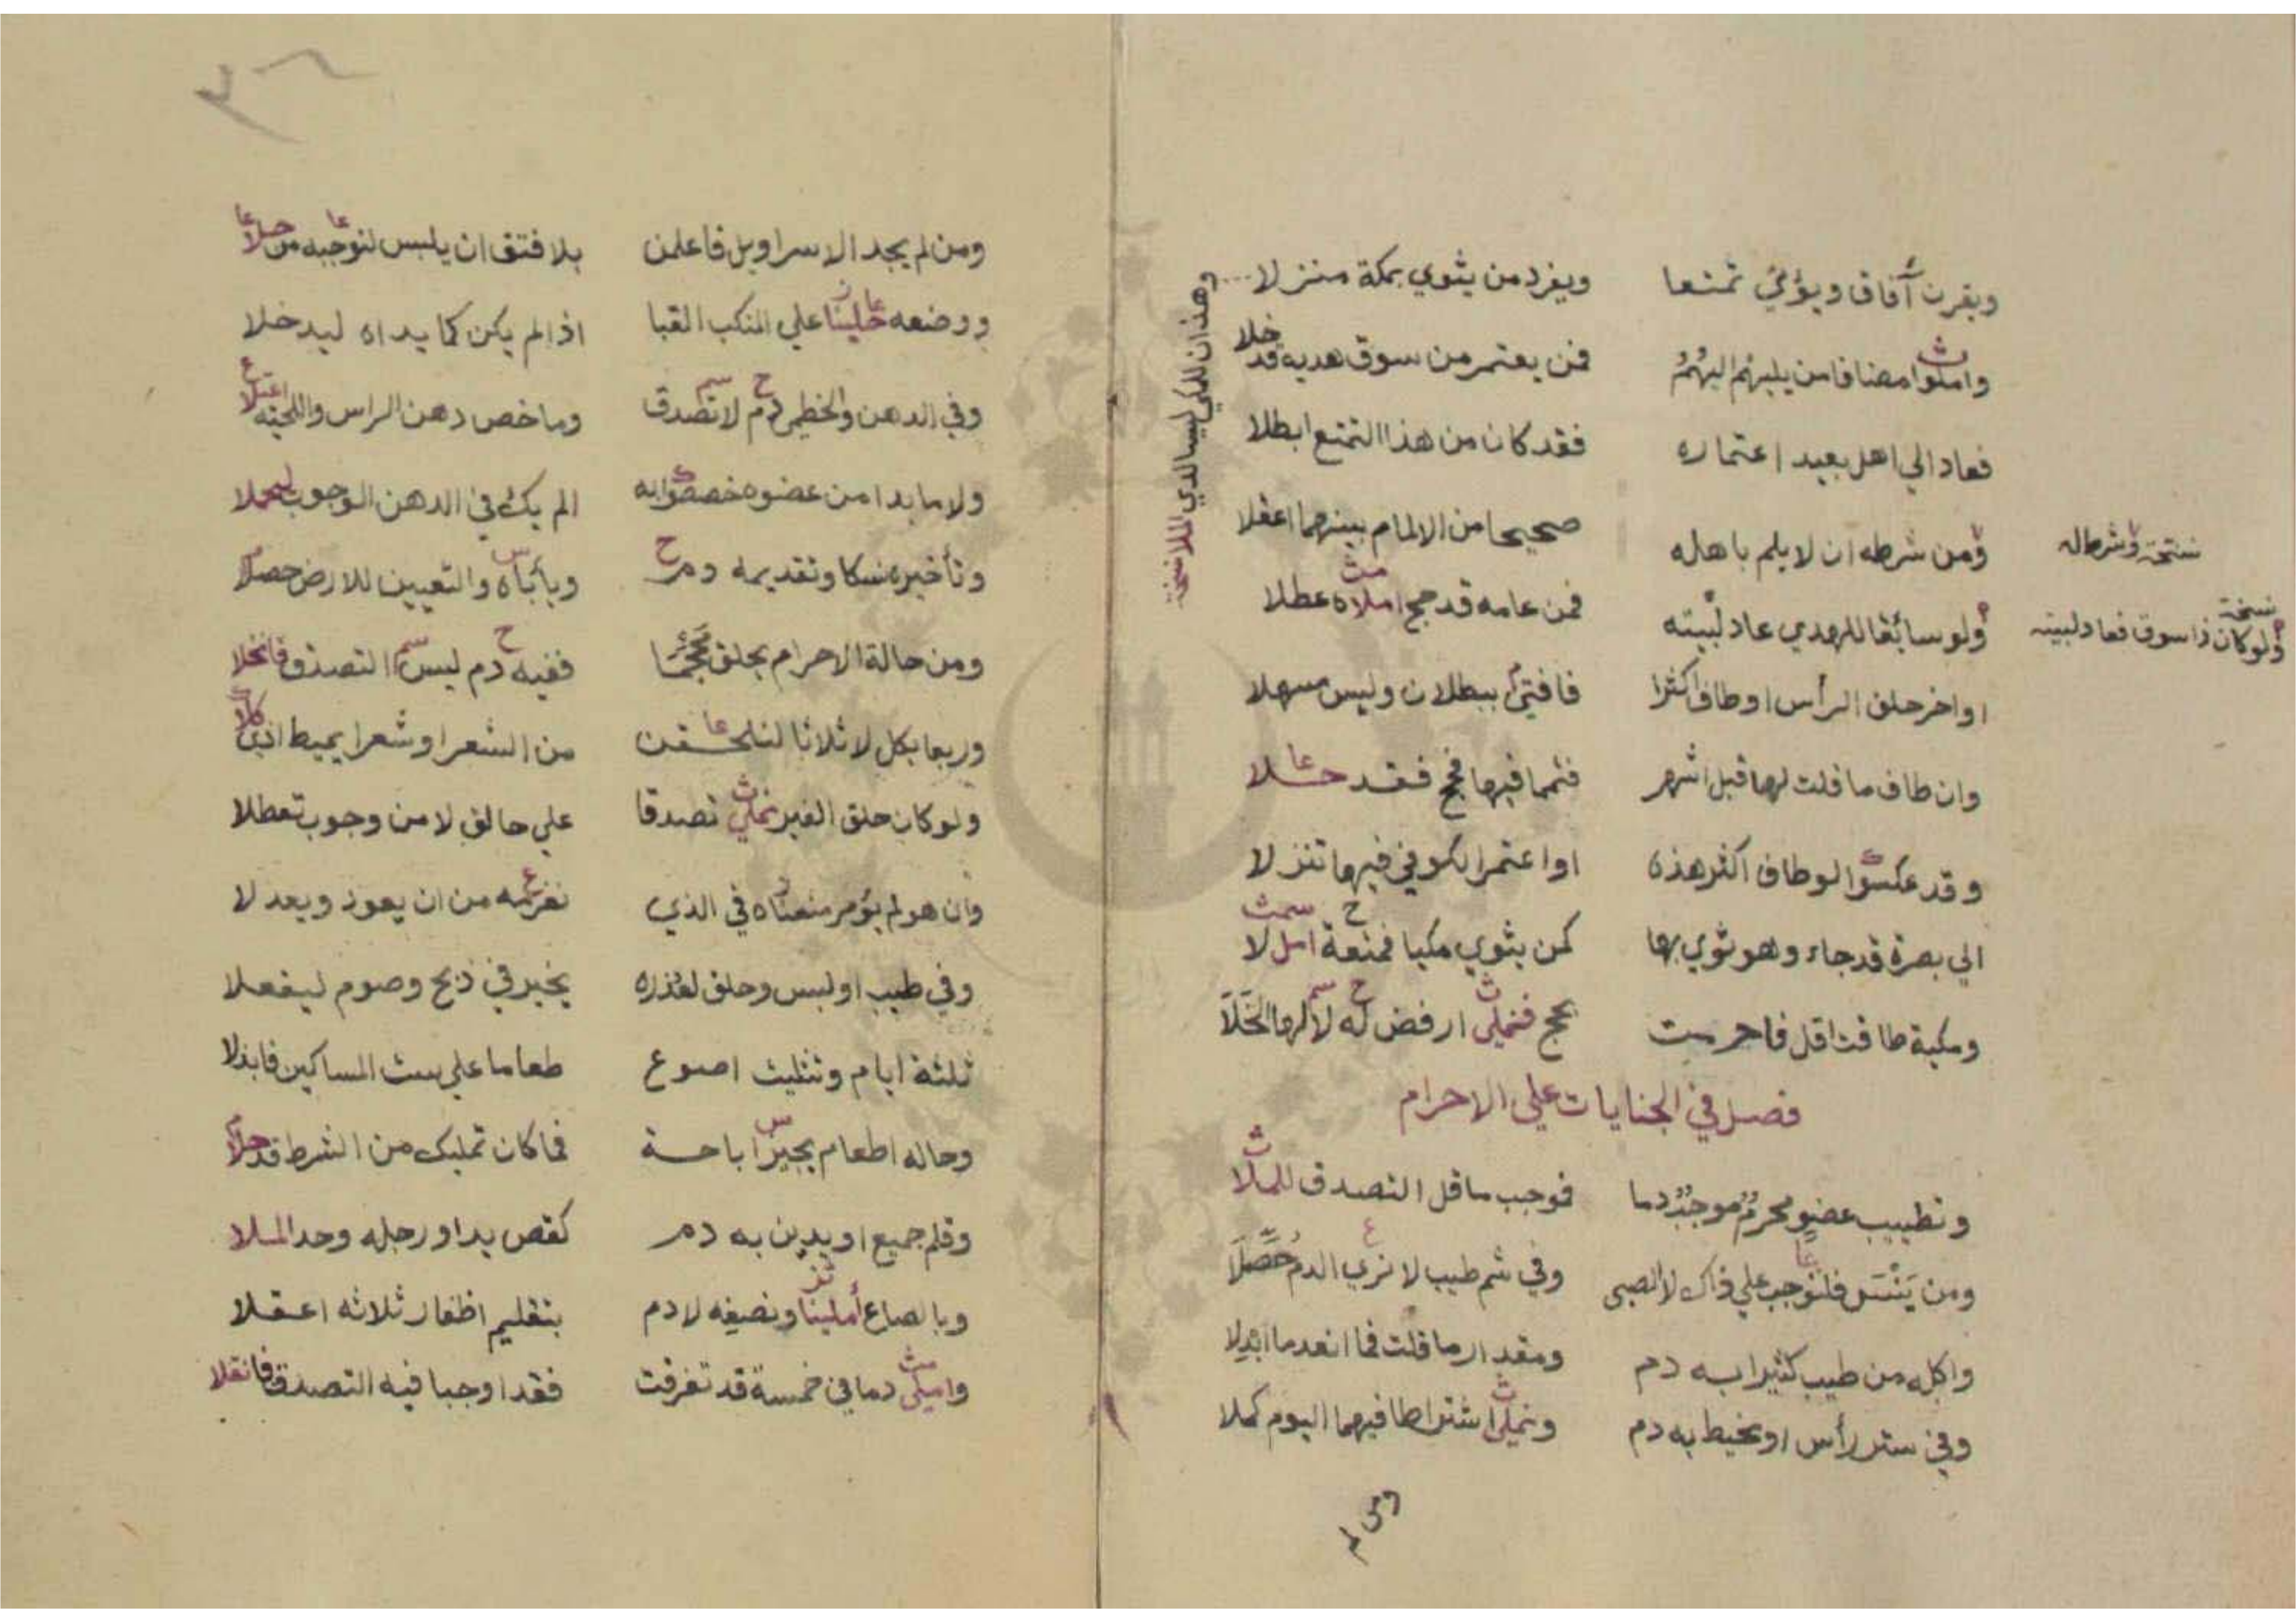 ويقرن آفاق ويؤتي تمتعا ويفرد من يثوي بمكة منزلا
واملوا مضافا من يلبهم اليهم فمن يعتمر من سوق هديه قد خلا
فعاد الي اهل بعيد اعتماره فقد كان من هذا التمتع ابطلا
ومن شرطه ان لا يلم باهله صحيحا من الالمام بينهما اعقلا
نسخة وشرطاله
ولو سائقا للهدي عاد لبيته فمن عامه قد حج املاه عطلا
نسخة ولو كان ذا سوق فعاد لبيته
او اخر حلق الرأس او طاف اكثرا فافتي ببطلان وليس مسهلا
وان طاف ما قلت لها قبل اشهر فتمما فيها فحج فقد حلا
وقد عكسوا لو طاف اكثر هذه او اعتمر الكوفي فيها تنزلا
الي بصرة قد جاء وهو ثوي بها كمن يثوي مكيا فمتعة امل لا
ومكية طافت اقل فاحرمت بحج فنملي ارفض له لا لها الخلا
وهذان للمكي ليسا لدي الملا نسخة
فصل في الجنايات علي الاحرام
وتطييب عضو محرم موجب دما فوجب ما قل التصدق للملا
ومن ينس فلنوجب علي ذاك لا الصبي وفي شم طيب لا نري الدم حصلا
واكله من طيب كثيرا به دم ومقدار ما قلت فما انعدما ابدلا
وفي ستر رأس او مخيط به دم ونملي اشتراطا فيهما اليوم كملا
ومن لم
٣٦
ومن لم يجد الا سراويل فاعلمن بلا فتق ان يلبس لنوجبه من حلا
ووضعه حلينا علي المنكب القبا اذا لم يكن كما يداه ليدخلا
وفي الدهن والخطمي دم لا تصدق وما خص دهن الراس واللحية اعتلا
ولا ما بدا من عضوه خصصوا به الم يك في الدهن الوجوب ليحملا
وتأخيره نسكا وتقديمه دم ويأباه والتعيين للارض حصلا
ومن حالة الاحرام يحلق محجما ففيه دم ليس التصدق فانخلا
وربعا بكل لا ثلاثا لنلحقن من الشعر او شعرا يميط اذي كلا
ولو كان حلق الغير نملي تصدقا علي حالق لا من وجوب تعطلا
وان هو لم يؤمر منعناه في الذي نغرمه من ان يعود ويعدلا
وفي طيب او لبس وحلق لعذره يخير في ذبح وصوم ليفعلا
ثلثة ايام وتثليث اصوع طعاما علي ست المساكين فابذلا
وحاله اطعام يجيز اباحة فما كان تمليك من الشرط قد حلا
وقلم جميع او يدين به دم كقص يد او رجله وحد الملا
وبالصاع أملينا ونصفه لا دم بتقليم اظفار ثلاثه اعقلا
واملي دما في خمسة قد تفرقت فقد اوجبا فيه التصدق فانقلا